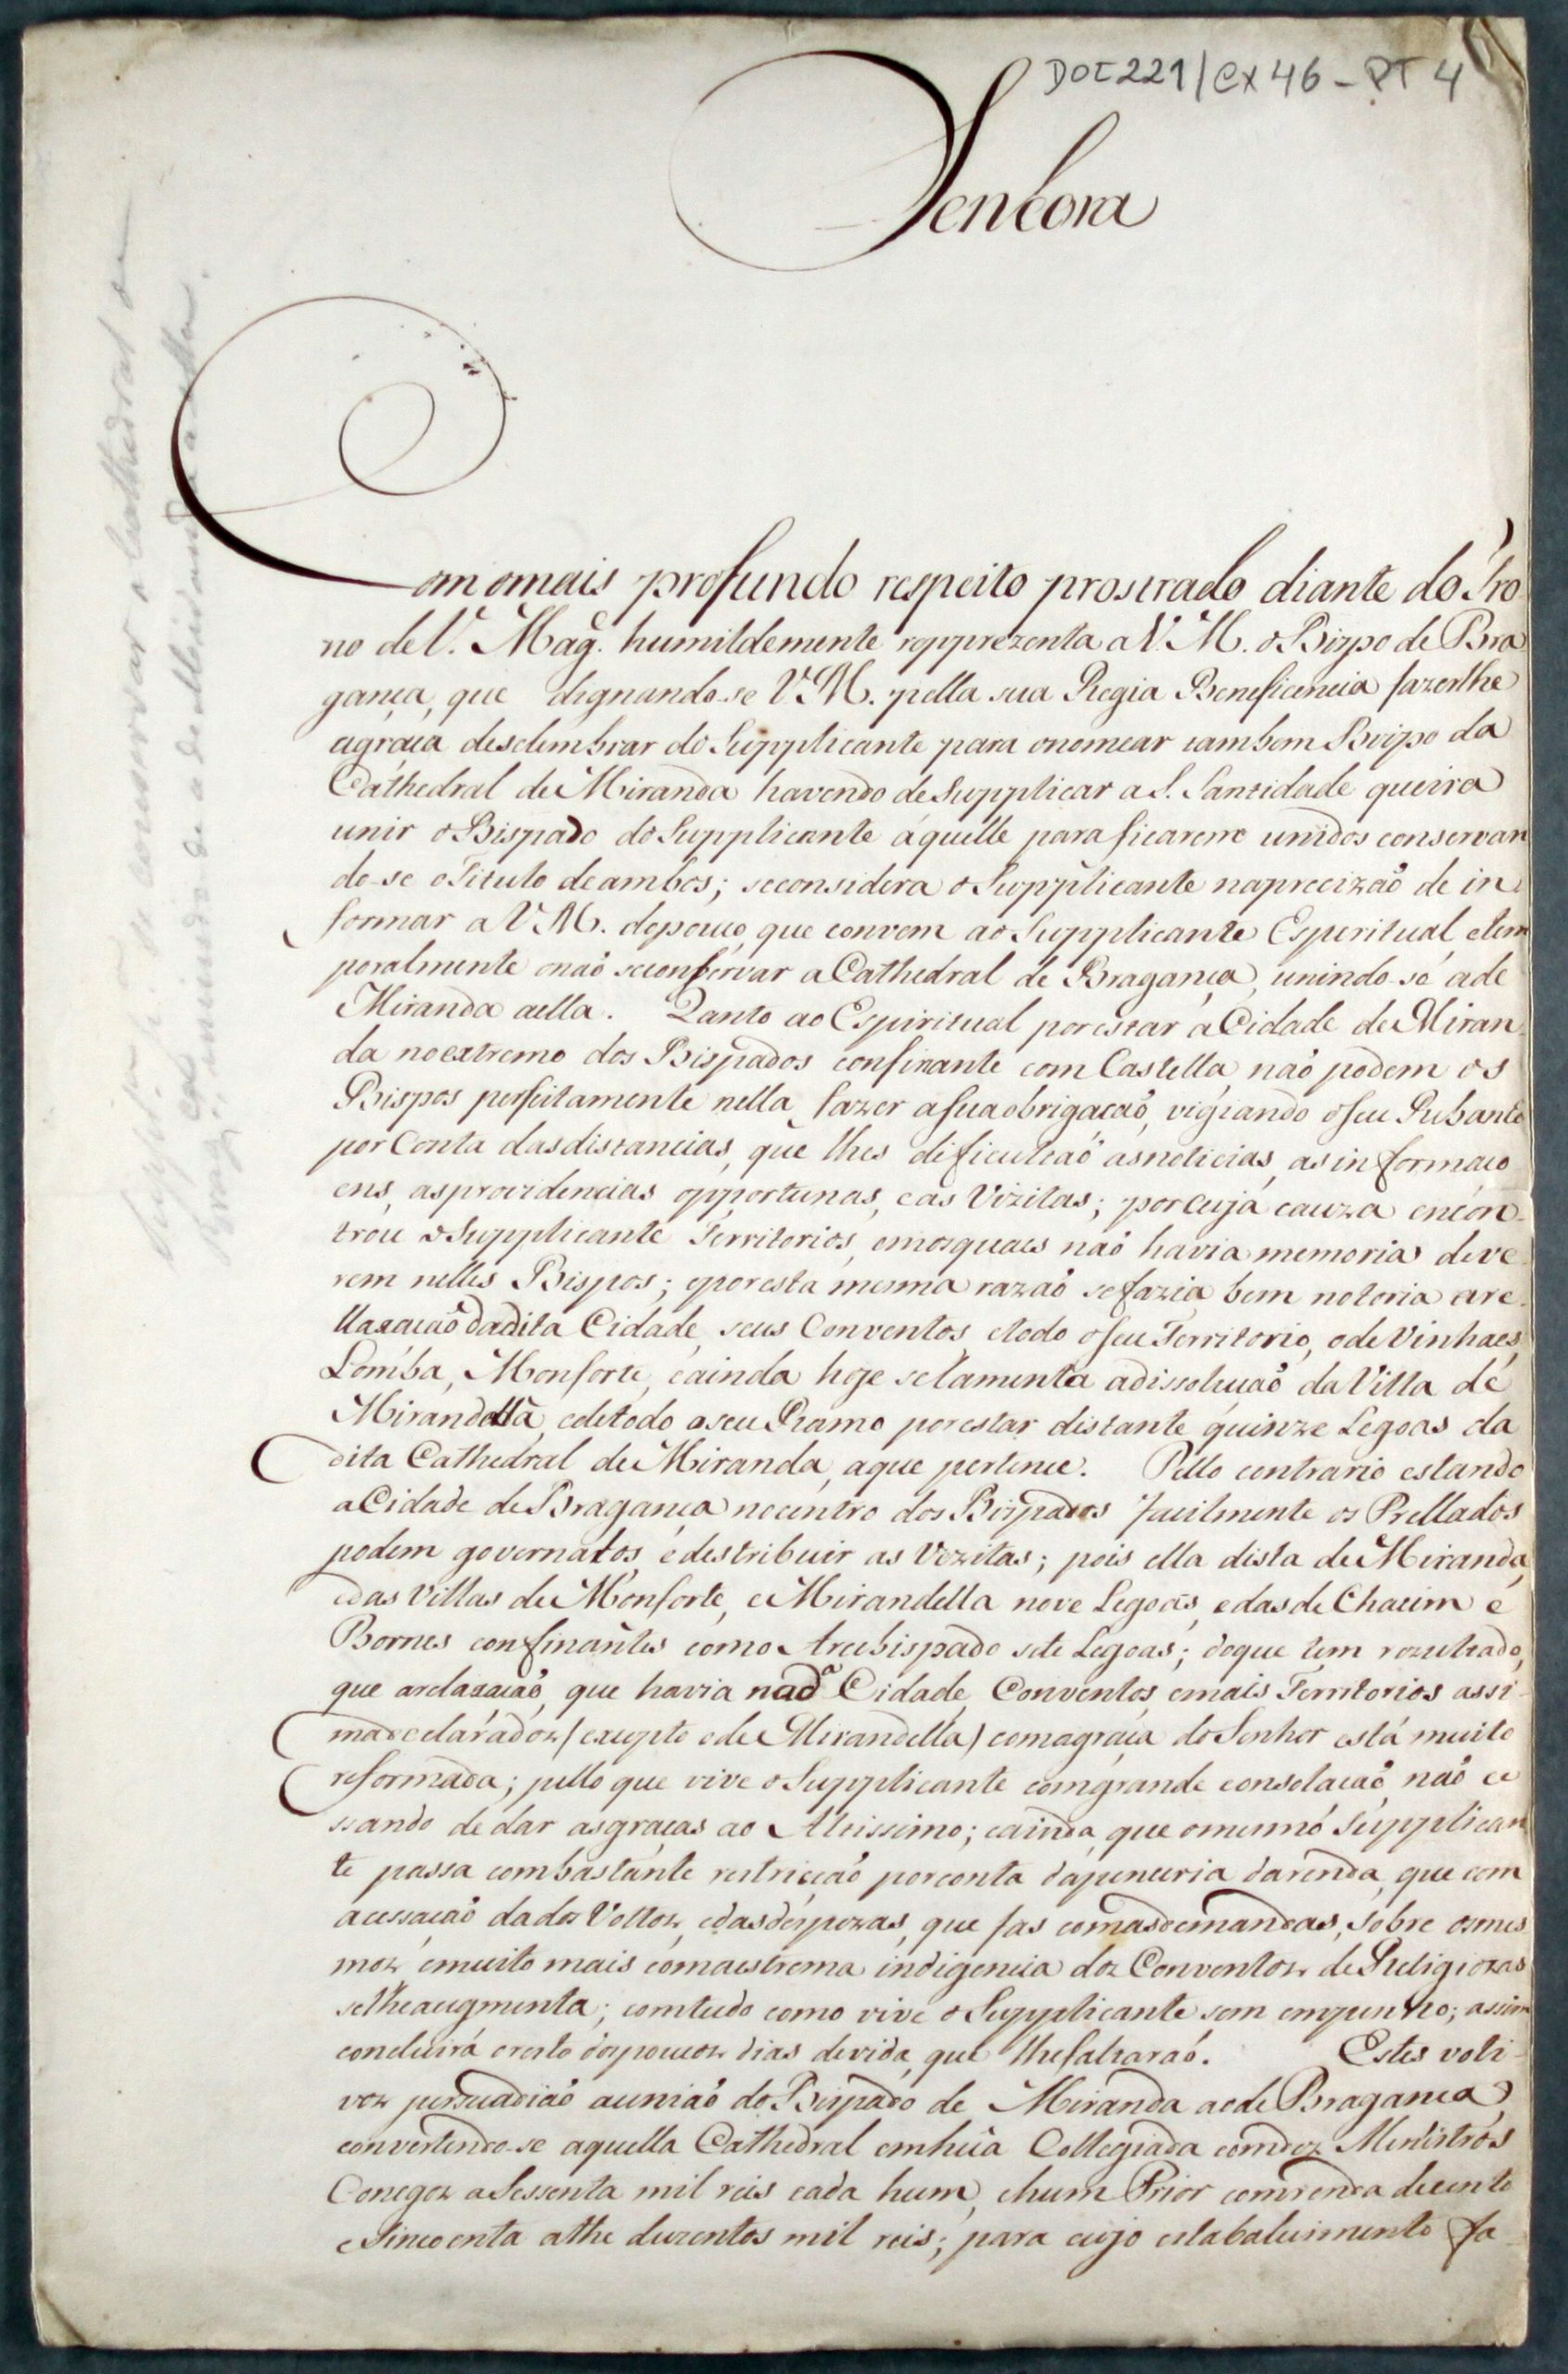 DOC 221/CX 46 - PT 4
Senhora
Com omais profundo respeito prostrado diante do Tro
no de V. Mag.e humildemente repprezenta a V. M. o Bispo de Bra
gança, que dignando-se V M. pella sua Regia Beneficencia fazerlhe
agraça desclembrar do Supplicante para onomear tambem Bispo da
Cathedral de Miranda havendo de Supplicar a S. Santidade queira
unir o Bispado do Supplicante áquelle para ficarem unidos conservan
do-se o Titulo de ambos; seconsidera o Supplicante naprecizaõ de in
formar a V M. dopouco, que convem ao Supplicante Espiritual etem
poralmente onaõ seconservar a Cathedral de Bragança, unindo-se ade
Miranda aella. Quanto ao Espiritual porestar a Cidade de Miran
da noextremo dos Bispados confinante com Castella, naõ podem os
Bispos perfeitamente nella fazer asuaobrigaçaõ, vigiando oseu Rebanho
por Conta dasdistancias, que lhes dificultaõ asnoticias, asinformaço
ens, asprovidencias opportunas, eas Vizitas; porcuja cauza encon
trou o Supplicante Territorios, emosquaes naõ havia memoria deve
rem nelles Bispos; eporesta mesma razaõ sefazia bem notoria are
llaxaçaõ dadita Cidade, seus Conventos, etodo oseu Territorio, ode Vinhaes,
Lomba, Monforte, eainda hoje selamenta adissoluçaõ da Villa de
Mirandella, edetodo oseu Ramo porestar distante quinze Legoas da
dita Cathedral de Miranda, aque pertence. Pello contrario estando
a Cidade de Bragança nocentro dos Bispados facilmente os Prellados
podem governalos e destribuir as Vezitas; pois ella dista de Miranda,
edas Villas de Monforte, e Mirandella nove Legoas, edasde Chacim e
Bornes confinantes como Arcebispado sete Legoas; doque tem rezultado,
que arelaxaçaõ, que havia nad.a Cidade, Conventos, emais Territorios assi
madeclarados (excepto ode Mirandella) comagraça do Senhor está muito
reformada; pello que vive o Supplicante comgrande consolaçaõ, naõ ce
ssando de dar asgraças ao Altissimo; eainda, que omesmo Supplican
te passa combastante restricçaõ porconta dapenuria darenda, que com
acessaçaõ dados Vottos, edasdespezas, que fas comasdemandas, sobre osmes
mos, emuito mais comaestrema indigencia dos Conventos de Religiozas
selheaugmenta; comtudo como vive o Supplicante sem empenho; assim
concluirá oresto dospoucos dias devida, que lhefaltaraõ. Estes voti
vos persuadiaõ auniaõ do Bispado de Miranda aode Bragança,
convertendo-se aquella Cathedral emhũa Collegiada comdez Ministros
Conegos a Sessenta mil reis cada hum, ehum Prior comrenda decento
e Sincoenta athe duzentos mil reis; para cujo estabalecimento fa